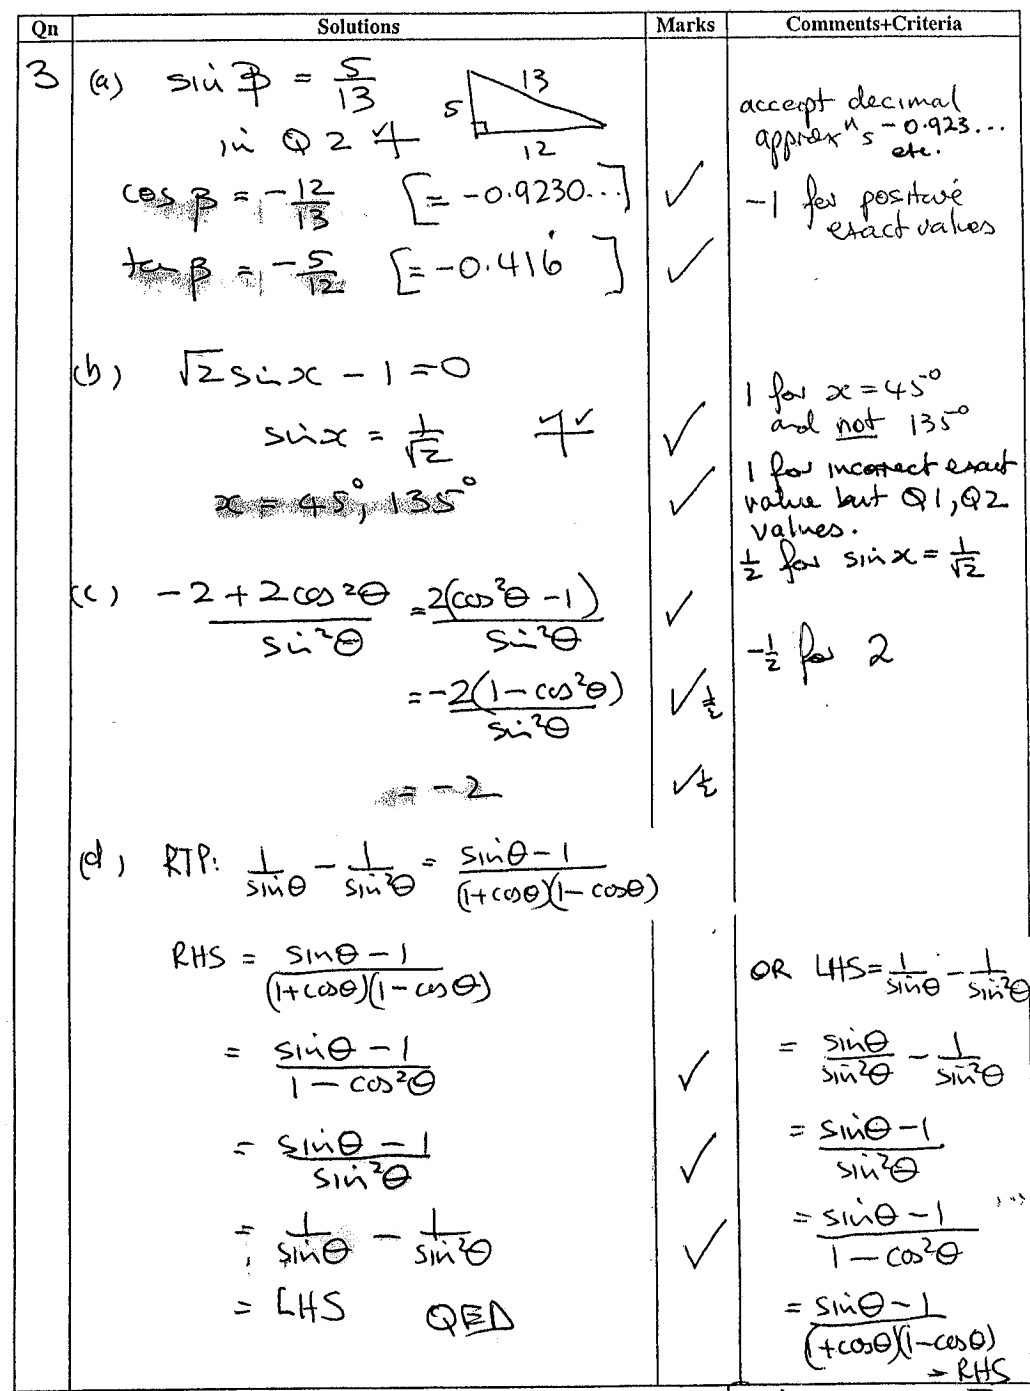 Qn Solutions Marks Comments+Criteria
3 (a) sin β = 5/13
13
5
12
in Q2
cos β = -12/13 [= -0.9230...] ✓
tan β = -5/12 [= -0.416̇ ] ✓
accept decimal
approxⁿs -0.923...
etc.
-1 for positive
exact values
(b) √2 sin x - 1 = 0
sin x = 1/√2 ✓
x = 45°, 135° ✓
1 for x = 45°
and not 135°
1 for incorrect exact
value but Q1, Q2
values.
1/2 for sin x = 1/√2
(c) (-2 + 2cos²θ)/sin²θ = 2(cos²θ - 1)/sin²θ ✓
= -2(1 - cos²θ)/sin²θ ✓ 1/2
= -2 ✓ 1/2
-1/2 for 2
(d) RTP: 1/sinθ - 1/sin²θ = (sinθ - 1)/((1+cosθ)(1-cosθ))
RHS = (sinθ - 1)/((1+cosθ)(1-cosθ))
= (sinθ - 1)/(1 - cos²θ) ✓
= (sinθ - 1)/sin²θ ✓
= 1/sinθ - 1/sin²θ ✓
= LHS QED
OR LHS = 1/sinθ - 1/sin²θ
= sinθ/sin²θ - 1/sin²θ
= (sinθ - 1)/sin²θ
= (sinθ - 1)/(1 - cos²θ)
= (sinθ - 1)/((1+cosθ)(1-cosθ))
= RHS